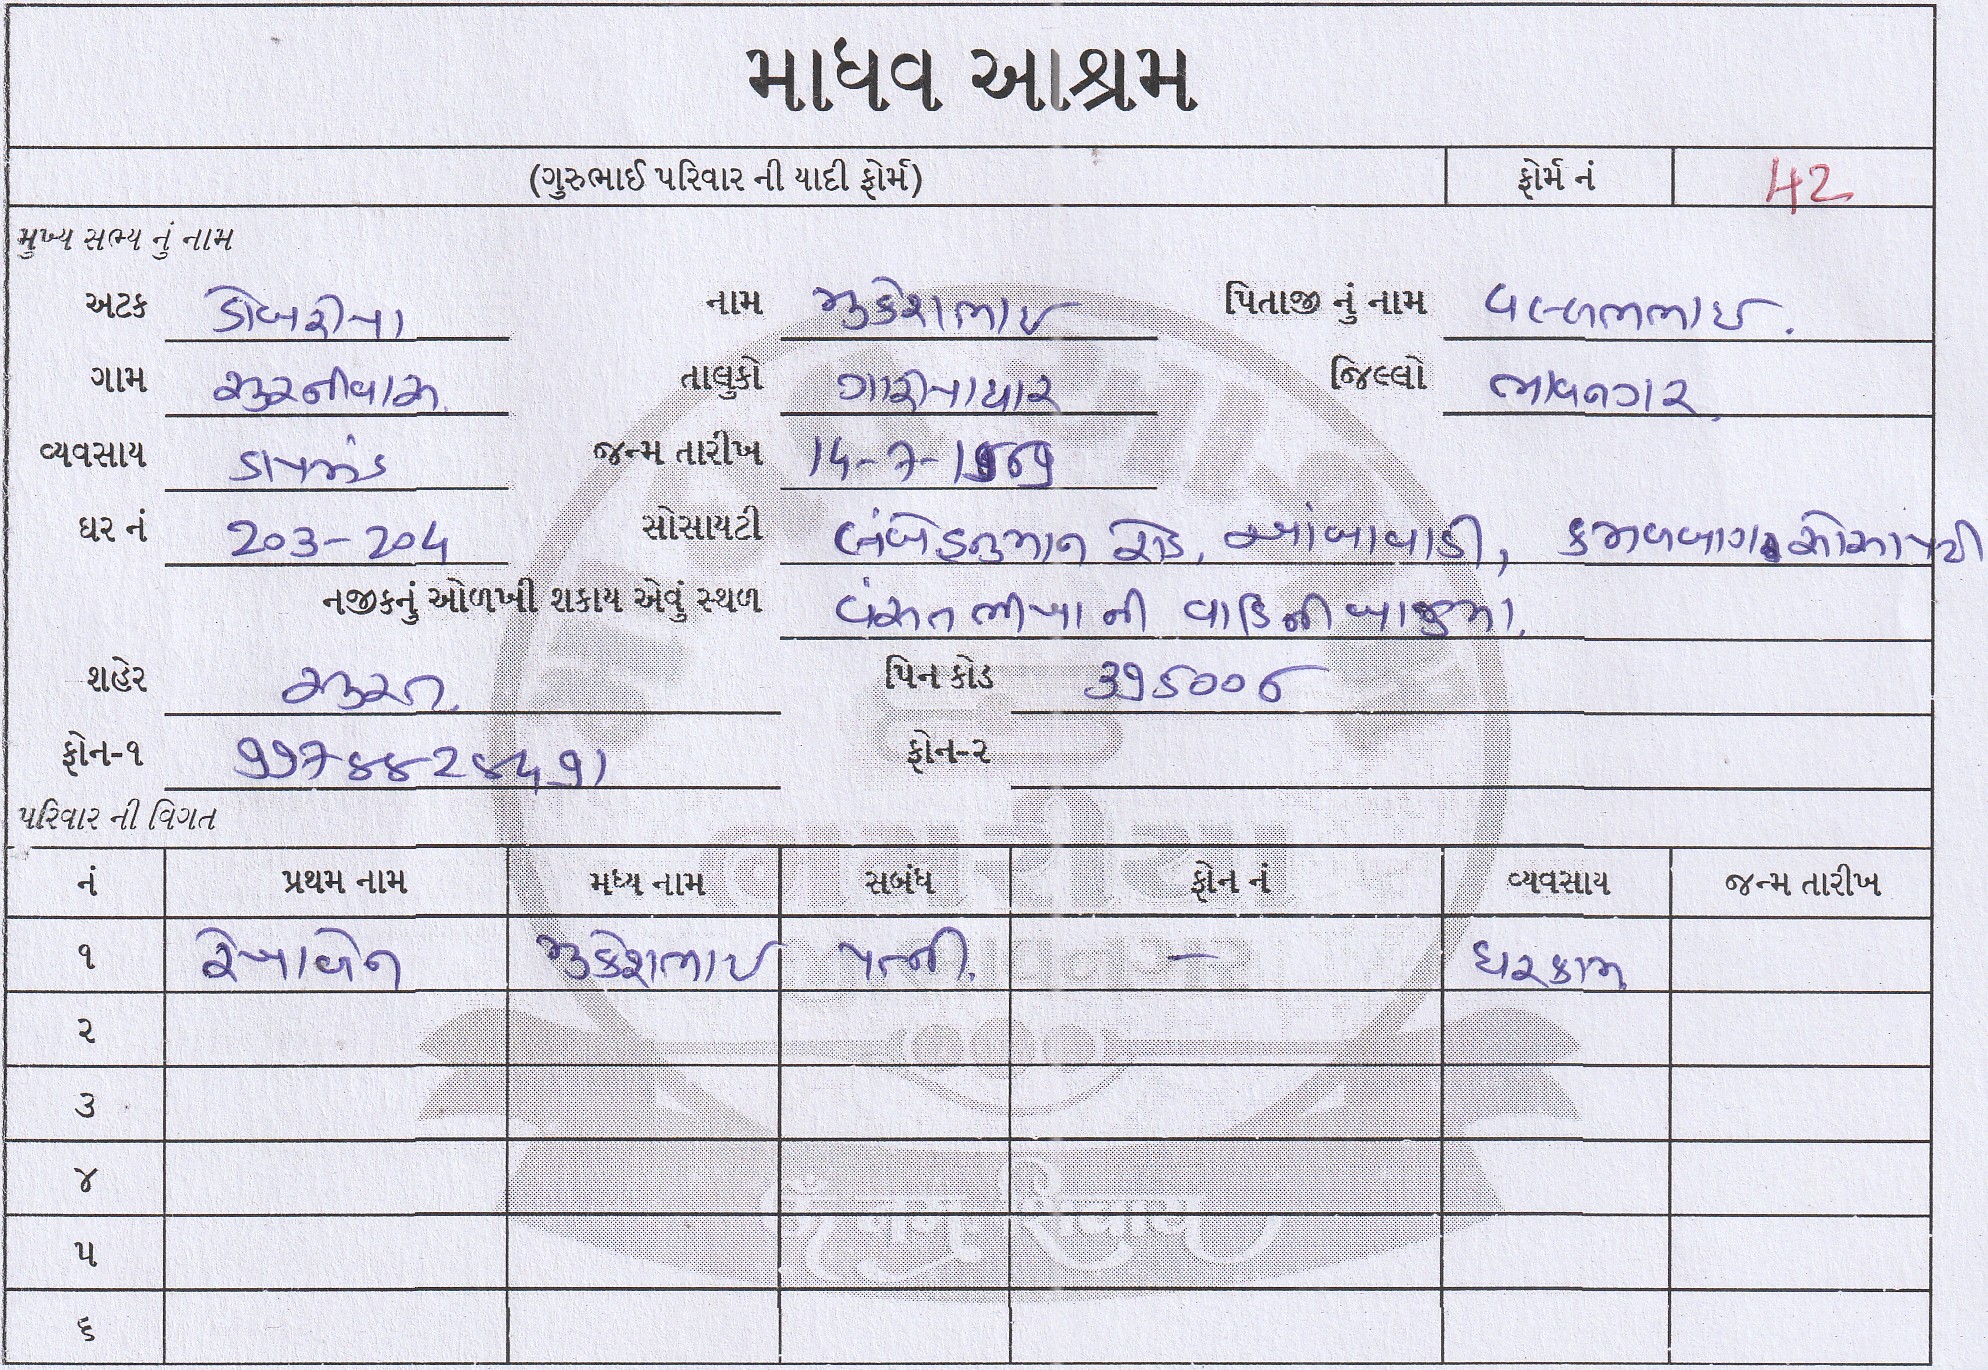 માધવ આશ્રમ
(ગુરુભાઈ પરિવાર ની યાદી ફોર્મ) ફોર્મ નં 42
મુખ્ય સભ્ય નું નામ
અટક ડોબરીયા નામ મુકેશભાઇ પિતાજી નું નામ વલ્લભભાઇ.
ગામ સુરનીવાસ તાલુકો ગારીયાધાર જિલ્લો ભાવનગર
વ્યવસાય ડાયમંડ જન્મ તારીખ 14-7-1969
ઘર નં 203-204 સોસાયટી લંબેહનુમાન રોડ, આંબાવાડી, કમળબાગ સોસાયટી
નજીકનું ઓળખી શકાય એવું સ્થળ વંસત ભીખા ની વાડિ ની બાજુમા.
શહેર સુરત પિન કોડ 395006
ફોન-૧ ફોન-૨
પરિવાર ની વિગત
નં પ્રથમ નામ મધ્ય નામ સબંધ ફોન નં વ્યવસાય જન્મ તારીખ
૧ રેખાબેન મુકેશભાઇ પત્ની. - ઘરકામ
૨
૩
૪
૫
૬